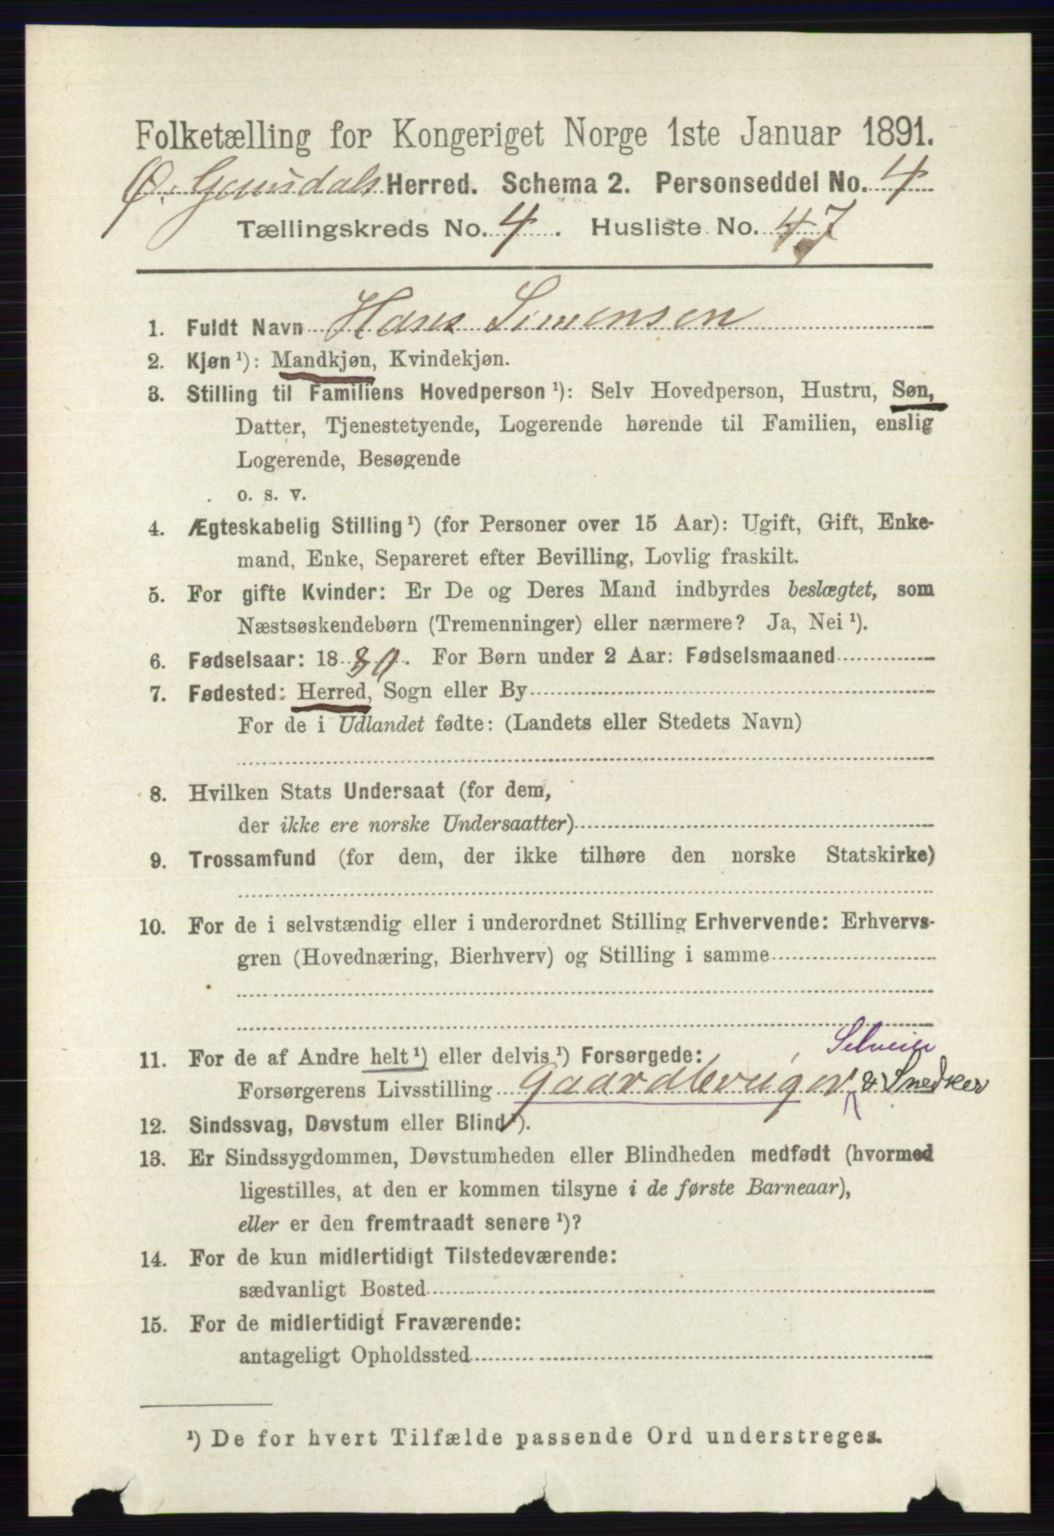 Folketælling for Kongeriget Norge 1ste Januar 1891.
Ø. Gausdals Herred. Schema 2. Personseddel No. 4
Tællingskreds No. 4. Husliste No. 47
1. Fuldt Navn Hans Simensen
2. Kjøn ¹): Mandkjøn, Kvindekjøn.
3. Stilling til Familiens Hovedperson ¹): Selv Hovedperson, Hustru, Søn,
Datter, Tjenestetyende, Logerende hørende til Familien, enslig
Logerende, Besøgende
o. s. v.
4. Ægteskabelig Stilling ¹) (for Personer over 15 Aar): Ugift, Gift, Enke-
mand, Enke, Separeret efter Bevilling, Lovlig fraskilt.
5. For gifte Kvinder: Er De og Deres Mand indbyrdes beslægtet, som
Næstsøskendebørn (Tremenninger) eller nærmere? Ja, Nei ¹).
6. Fødselsaar: 1880. For Børn under 2 Aar: Fødselsmaaned
7. Fødested: Herred, Sogn eller By
For de i Udlandet fødte: (Landets eller Stedets Navn)
8. Hvilken Stats Undersaat (for dem,
der ikke ere norske Undersaatter)
9. Trossamfund (for dem, der ikke tilhøre den norske Statskirke)
10. For de i selvstændig eller i underordnet Stilling Erhvervende: Erhvervs-
gren (Hovednæring, Bierhverv) og Stilling i samme
Selveier
11. For de af Andre helt ¹) eller delvis ¹) Forsørgede:
Forsørgerens Livsstilling Gaardbruger & Snedker
12. Sindssvag, Døvstum eller Blind ¹).
13. Er Sindssygdommen, Døvstumheden eller Blindheden medfødt (hvormed
ligestilles, at den er kommen tilsyne i de første Barneaar),
eller er den fremtraadt senere ¹)?
14. For de kun midlertidigt Tilstedeværende:
sædvanligt Bosted
15. For de midlertidigt Fraværende:
antageligt Opholdssted
¹) De for hvert Tilfælde passende Ord understreges.